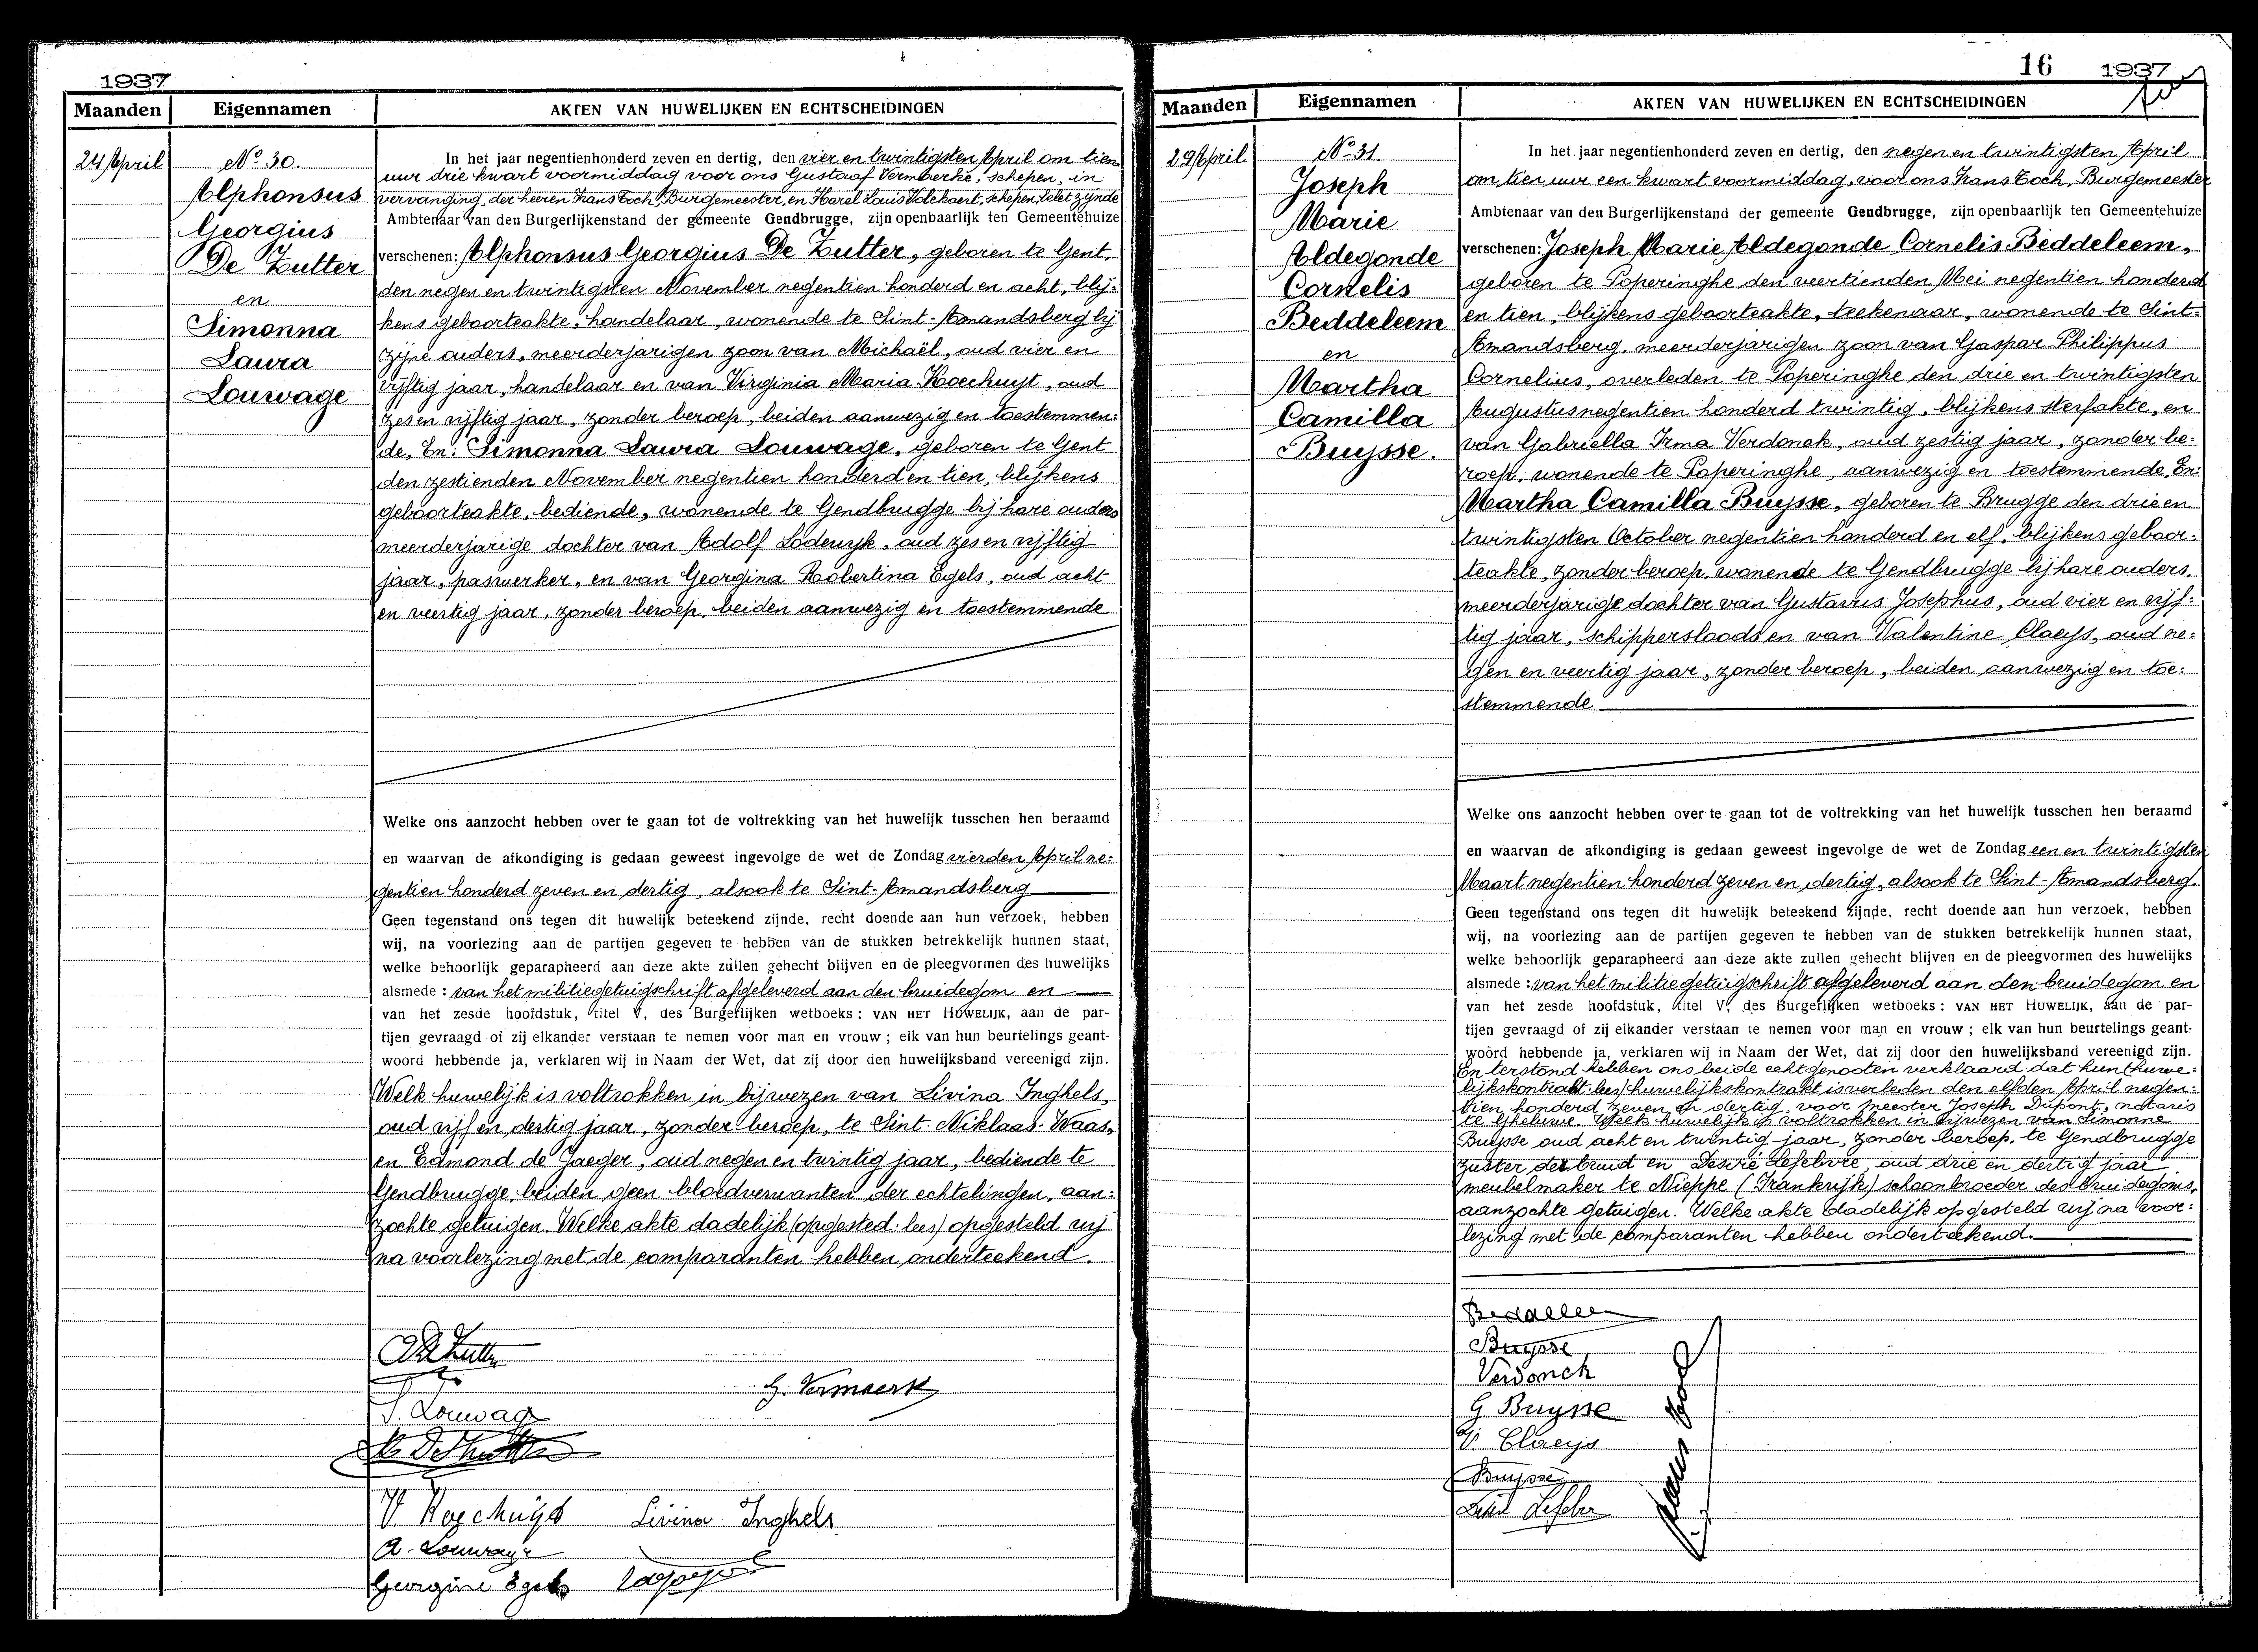 1937
Maanden Eigennamen AKTEN VAN HUWELIJKEN EN ECHTSCHEIDINGEN
24 April
No 30.
Alphonsus
Georgius
De Zutter
en
Simonna
Laura
Louwage
In het jaar negentienhonderd zeven en dertig, den vier en twintigsten April om tien
uur drie kwart voormiddag voor ons Gustaaf Vermberke, schepen, in
vervanging der heeren Frans Toch, Burgemeester, en Karel Louis Volckaert, schepen, belet zijnde
Ambtenaar van den Burgerlijkenstand der gemeente Gendbrugge, zijn openbaarlijk ten Gemeentehuize
verschenen: Alphonsus Georgius De Zutter, geboren te Gent,
den negen en twintigsten November negentien honderd en acht, blij-
kens geboorteakte, handelaar, wonende te Sint-Amandsberg bij
zijne ouders, meerderjarigen zoon van Michaël, oud vier en
vijftig jaar, handelaar en van Virginia Maria Koechuyt, oud
zes en vijftig jaar, zonder beroep, beiden aanwezig en toestemmen-
de, En: Simonna Laura Louwage, geboren te Gent
den zestienden November negentien honderd en tien, blijkens
geboorteakte, bediende, wonende te Gendbrugge bij hare ouders
meerderjarige dochter van Adolf Lodewyk, oud zes en vijftig
jaar, paswerker, en van Georgina Robertina Egels, oud acht
en veertig jaar, zonder beroep, beiden aanwezig en toestemmende
Welke ons aanzocht hebben over te gaan tot de voltrekking van het huwelijk tusschen hen beraamd
en waarvan de afkondiging is gedaan geweest ingevolge de wet de Zondag vierden April ne-
gentien honderd zeven en dertig, alsook te Sint-Amandsberg
Geen tegenstand ons tegen dit huwelijk beteekend zijnde, recht doende aan hun verzoek, hebben
wij, na voorlezing aan de partijen gegeven te hebben van de stukken betrekkelijk hunnen staat,
welke behoorlijk geparapheerd aan deze akte zullen gehecht blijven en de pleegvormen des huwelijks
alsmede: van het militiegetuigschrift afgeleverd aan den bruidegom en
van het zesde hoofdstuk, titel V, des Burgerlijken wetboeks: VAN HET HUWELIJK, aan de par-
tijen gevraagd of zij elkander verstaan te nemen voor man en vrouw; elk van hun beurtelings geant-
woord hebbende ja, verklaren wij in Naam der Wet, dat zij door den huwelijksband vereenigd zijn.
Welk huwelijk is voltrokken in bijwezen van Livina Inghels,
oud vijf en dertig jaar, zonder beroep, te Sint-Niklaas-Waas,
en Edmond de Jaeger, oud negen en twintig jaar, bediende te
Gendbrugge, beiden geen bloedverwanten der echtelingen, aan-
zochte getuigen. Welke akte dadelijk (opgested: lees) opgesteld wij
na voorlezing met de comparanten hebben onderteekend.
G. Vermaerk
S. Louwage
V. Koechuyt Livina Inghels
A. Louwage
Georgine Egels
16 1937
Maanden Eigennamen AKTEN VAN HUWELIJKEN EN ECHTSCHEIDINGEN
29 April
No 31.
Joseph
Marie
Aldegonde
Cornelis
Beddeleem
en
Martha
Camilla
Buysse.
In het jaar negentienhonderd zeven en dertig, den negen en twintigsten April
om tien uur een kwart voormiddag, voor ons Frans Toch, Burgemeester
Ambtenaar van den Burgerlijkenstand der gemeente Gendbrugge, zijn openbaarlijk ten Gemeentehuize
verschenen: Joseph Marie Aldegonde Cornelis Beddeleem,
geboren te Poperinghe den veertienden Mei negentien honderd
en tien, blijkens geboorteakte, teekenaar, wonende te Sint-
Amandsberg, meerderjarigen zoon van Gaspar Philippus
Cornelius, overleden te Poperinghe den drie en twintigsten
Augustus negentien honderd twintig, blijkens sterfakte, en
van Gabriella Irma Verdonck, oud zestig jaar, zonder be-
roep, wonende te Poperinghe, aanwezig en toestemmende, En:
Martha Camilla Buysse, geboren te Brugge den drie en
twintigsten October negentien honderd en elf, blijkens geboor-
teakte, zonder beroep, wonende te Gendbrugge bij hare ouders,
meerderjarige dochter van Gustavus Josephus, oud vier en vijf-
tig jaar, schippersloods en van Valentine Claeys, oud ne-
gen en veertig jaar, zonder beroep, beiden aanwezig en toe-
stemmende
Welke ons aanzocht hebben over te gaan tot de voltrekking van het huwelijk tusschen hen beraamd
en waarvan de afkondiging is gedaan geweest ingevolge de wet de Zondag een en twintigsten
Maart negentien honderd zeven en dertig, alsook te Sint-Amandsberg.
Geen tegenstand ons tegen dit huwelijk beteekend zijnde, recht doende aan hun verzoek, hebben
wij, na voorlezing aan de partijen gegeven te hebben van de stukken betrekkelijk hunnen staat,
welke behoorlijk geparapheerd aan deze akte zullen gehecht blijven en de pleegvormen des huwelijks
alsmede: van het militiegetuigschrift afgeleverd aan den bruidegom en
van het zesde hoofdstuk, titel V, des Burgerlijken wetboeks: VAN HET HUWELIJK, aan de par-
tijen gevraagd of zij elkander verstaan te nemen voor man en vrouw; elk van hun beurtelings geant-
woord hebbende ja, verklaren wij in Naam der Wet, dat zij door den huwelijksband vereenigd zijn.
En terstond hebben ons beide echtgenooten verklaard dat hun (huwe-
lijkskontrabt: lees) huwelijkskontrakt is verleden den elfden April negen-
tien honderd zeven en dertig, voor meester Joseph Dupont, notaris
te Gheluwe. Welk huwelijk is voltrokken in bijwezen van Simonne
Buysse oud acht en twintig jaar, zonder beroep, te Gendbrugge
zuster der bruid en Desiré Lefebvre, oud drie en dertig jaar
meubelmaker te Nieppe (Frankrijk) schoonbroeder des bruidegoms,
aanzochte getuigen. Welke akte dadelijk opgesteld wij na voor-
lezing met de comparanten hebben onderteekend.
Beddeleem
Buysse
Verdonck
G Buysse
V Claeys
Buysse
Lefebvre